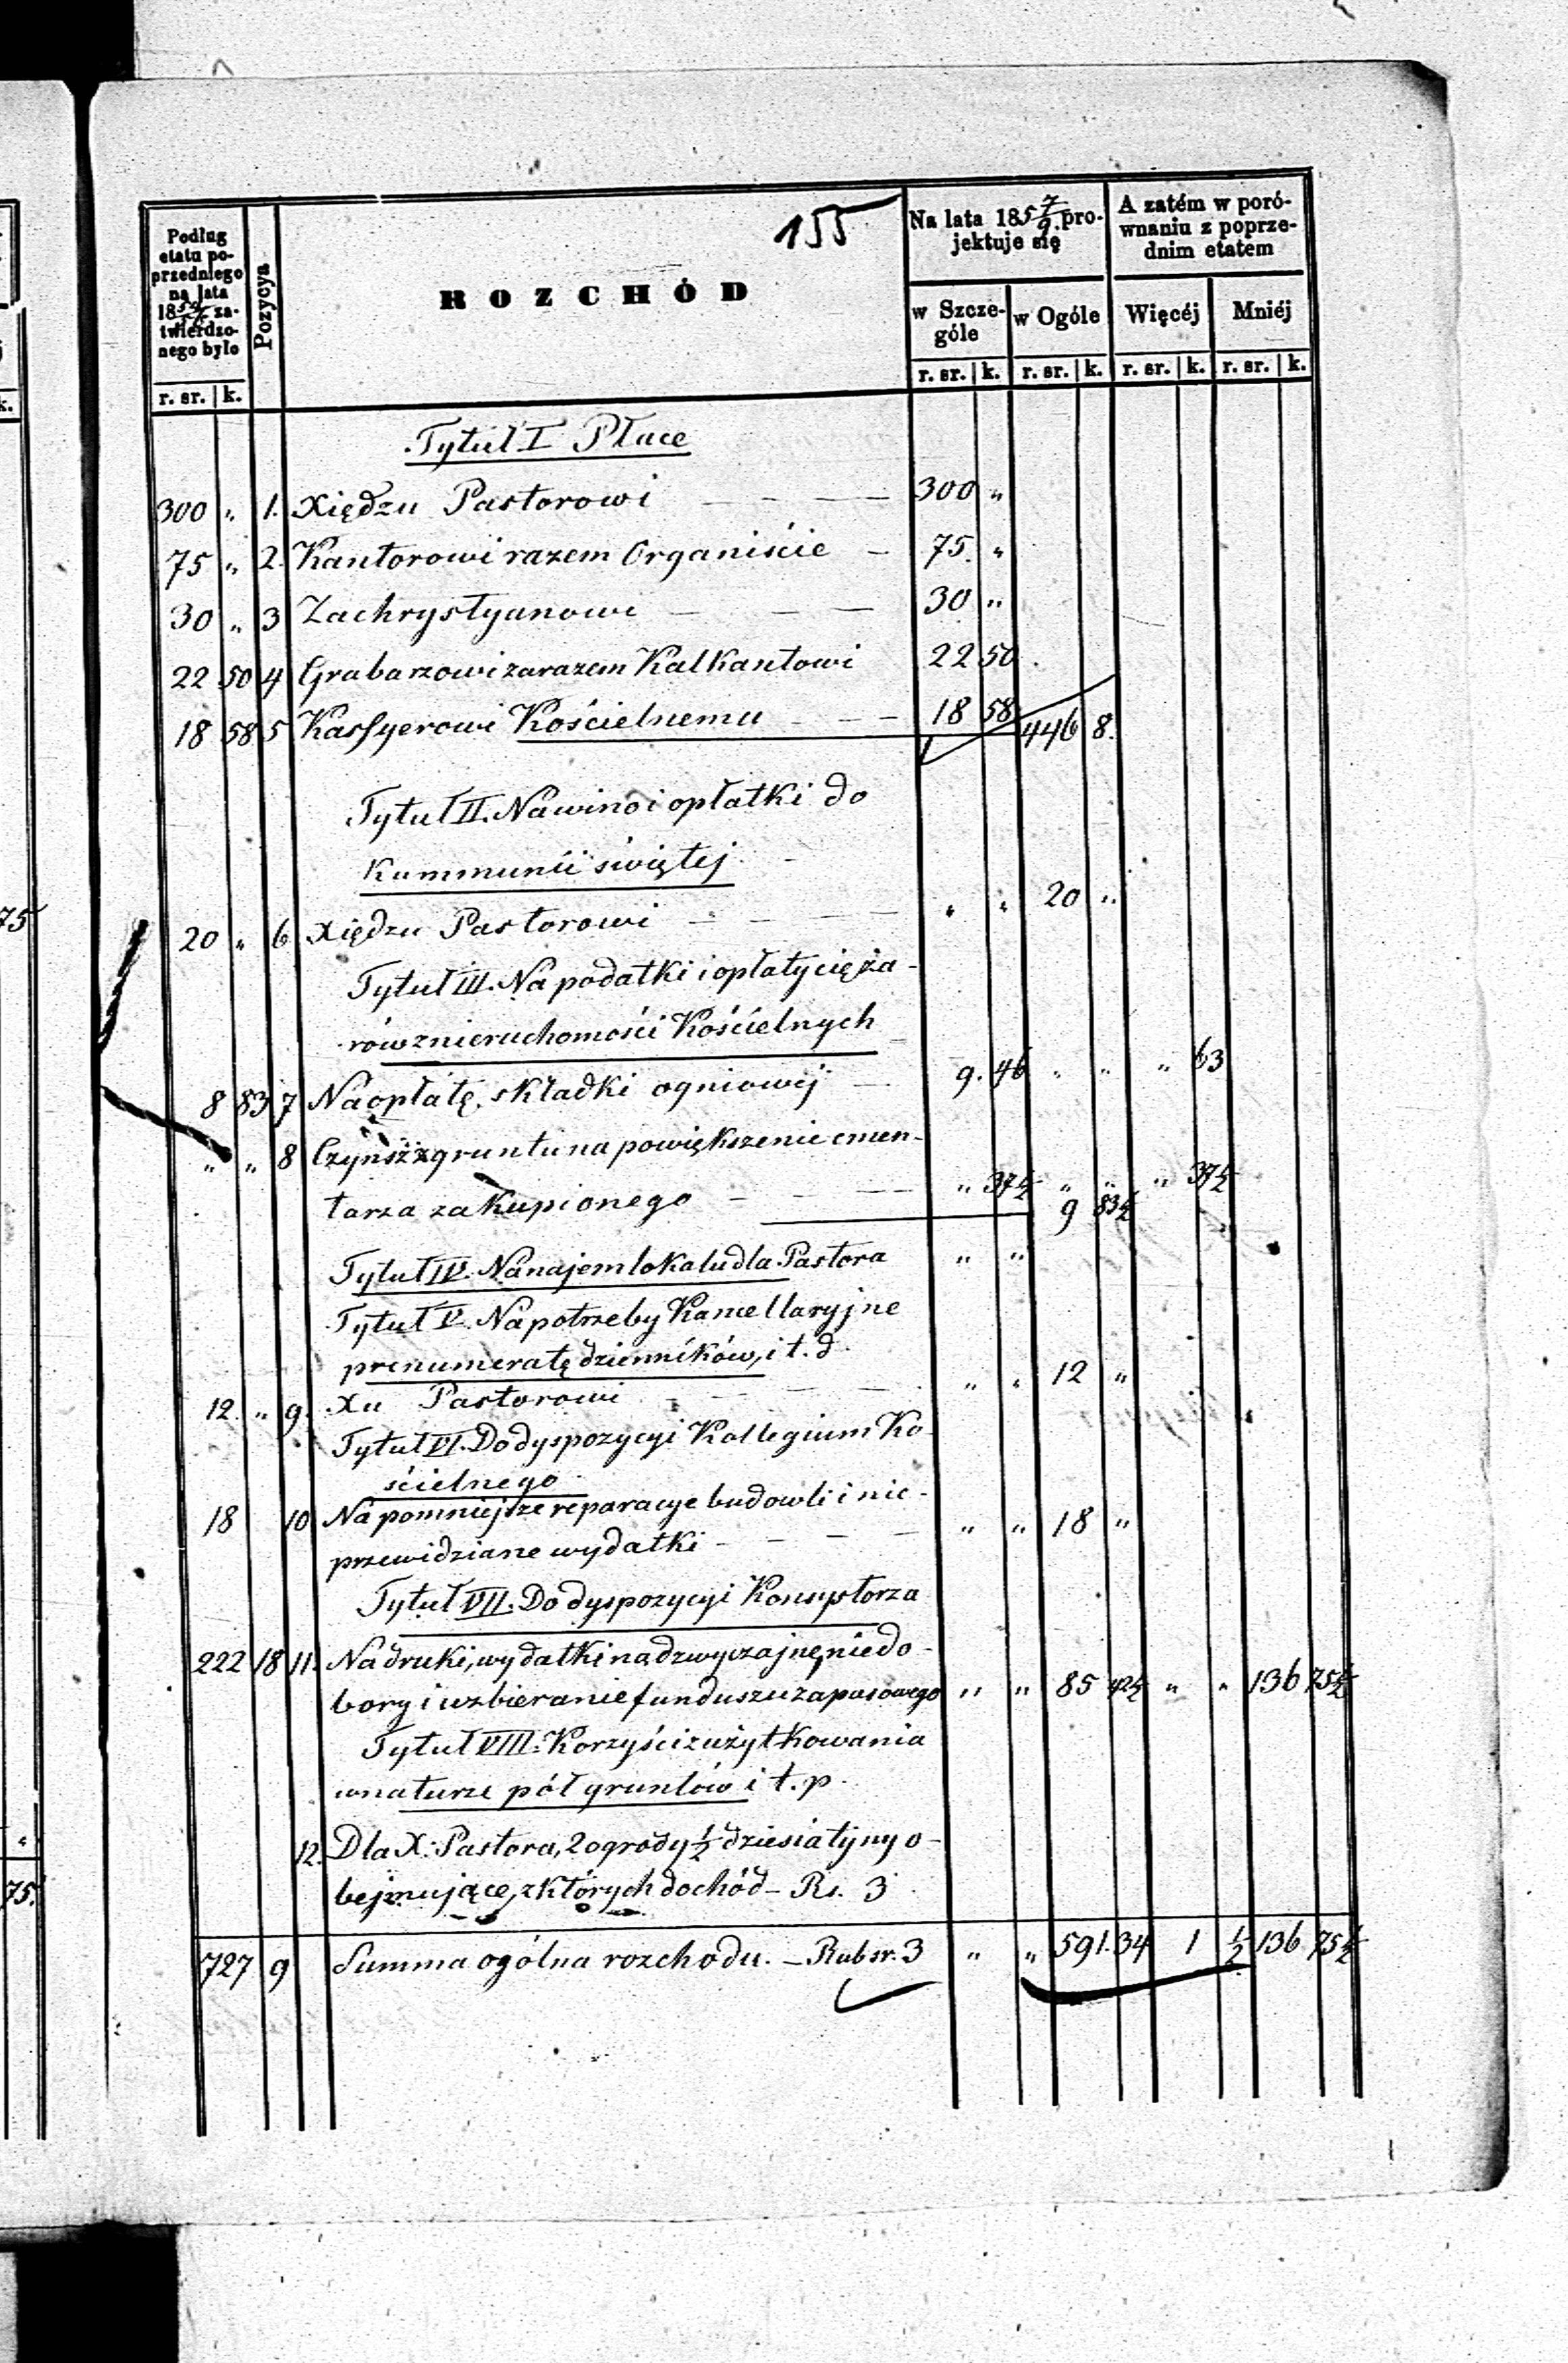 155
Podług etatu poprzedniego na lata 18 zatwierdzonego było
Pozycya
ROZCHÓD
Na lata 185 7/9 projektuje się
A zatém w porównaniu z poprzednim etatem
w Szczególe
w Ogóle
Więcéj
Mniéj
r. sr. k. r. sr. k. r. sr. k. r. sr. k. r. sr. k.
Tytuł I Płace
300 " 1. Xiędzu Pastorowi — — — 300 "
75 " 2. Kantorowi razem Organiście — 75. "
30 " 3 Zachrystyanowi — — — 30 "
22 50 4 Grabarzowi zarazem Kalkantowi 22 50
18 58 5 Kassyerowi Kościelnemu — — — 18 58 446 8.
Tytuł II. Na wino i opłatki do
Kommunii świętej
20 " 6 Xiędzu Pastorowi — — — " " 20 "
Tytuł III. Na podatki i opłaty cięża-
rów z nieruchomości Kościelnych
8 83 7 Na opłatę składki ogniowéj — 9. 46 " " " 63
" " 8 Czynsz z gruntu na powiększenie cmen-
tarza zakupionego — — — " 37½ " " " 37½
9 83½
Tytuł IV. Na najem lokalu dla Pastora " "
Tytuł V. Na potrzeby Kancellaryjne
prenumeratę dzienników, i t. d.
12. " 9. Xu Pastorowi — — — " " 12 "
Tytuł VI. Do dyspozycyi Kollegium Ko-
ścielnego
18 10 Na pomniejsze reparacye budowli i nie-
przewidziane wydatki — — — " " 18 "
Tytuł VII. Do dyspozycyi Konsystorza
222 18 11. Na druki, wydatki nadzwyczajne, niedo-
bory i uzbieranie funduszu zapasowego " " 85 42½ " " 136 75½
Tytuł VIII. Korzyści z użytkowania
w naturze pół gruntów i t. p.
12. Dla X. Pastora, 2 ogrody ½ dziesiatyny o-
bejmujące, z których dochód — Rs. 3
727 9 Summa ogólna rozchodu. — Rub sr. 3 " " 591. 34 1 ½ 136 75½
75
75.
k.